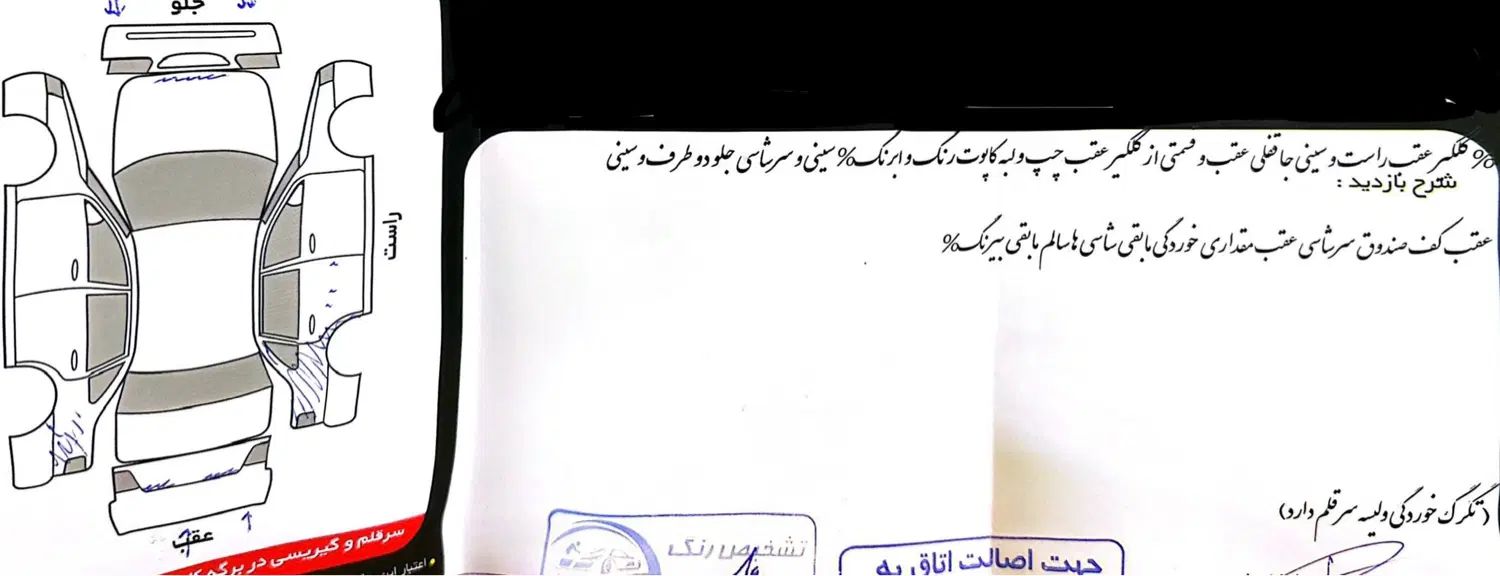 جلو
راست
عقب
سرقلم و گیریسی در برگه
اعتبار این
% گلگیر عقب راست و سینی جاقفلی عقب و قسمتی از گلگیر عقب چپ و لبه کاپوت رنگ و ابرنگ% سینی و سرشاسی جلو دو طرف و سینی
شرح بازدید :
عقب کف صندوق سرشاسی عقب مقداری خوردگی مابقی شاسی ها سالم مابقی بیرنگ%
(تگرگ خوردگی و لیسه سرقلم دارد)
تشخیص رنگ
جهت اصالت اتاق به